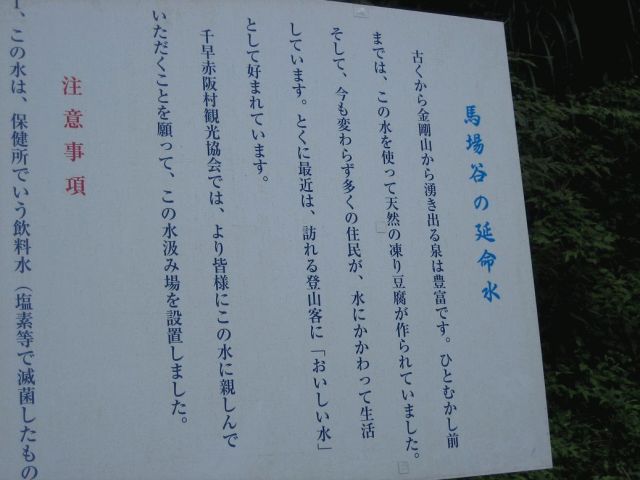 馬場谷の延命水
古くから金剛山から湧き出る泉は豊富です。ひとむかし前
までは、この水を使って天然の凍り豆腐が作られていました。
そして、今も変わらず多くの住民が、水にかかわって生活
しています。とくに最近は、訪れる登山客に「おいしい水」
として好まれています。
千早赤阪村観光協会では、より皆様にこの水に親しんで
いただくことを願って、この水汲み場を設置しました。
注意事項
1、この水は、保健所でいう飲料水(塩素等で滅菌したもの